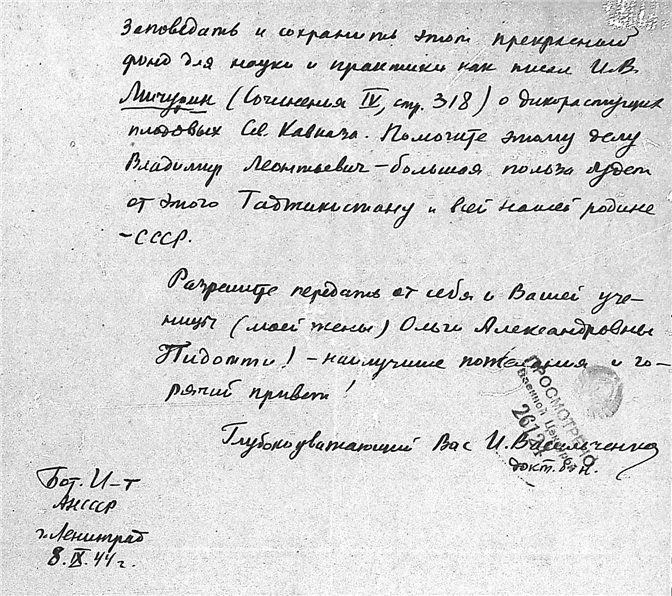 Заповедать и сохранить этот прекрасный
фонд для науки и практики как писал И.В.
Мичурин (Сочинения IV, стр. 318) о дикорастущих
плодовых Сев. Кавказа. Помогите этому делу
Владимир Леонтьевич – большая польза будет
от этого Таджикистану и всей нашей родине
– СССР.
Разрешите передать от себя и Вашей уче-
ницы (моей жены) Ольги Александровны
Пидотти! – наилучшие пожелания и го-
рячий привет!
Глубокоуважающий Вас И. Васильченко
докт. б. н.
ПРОСМОТРЕНО
Военной Цензурой
26124
Бот. И-т
АНСССР
г. Ленинград
8.IX.44 г.